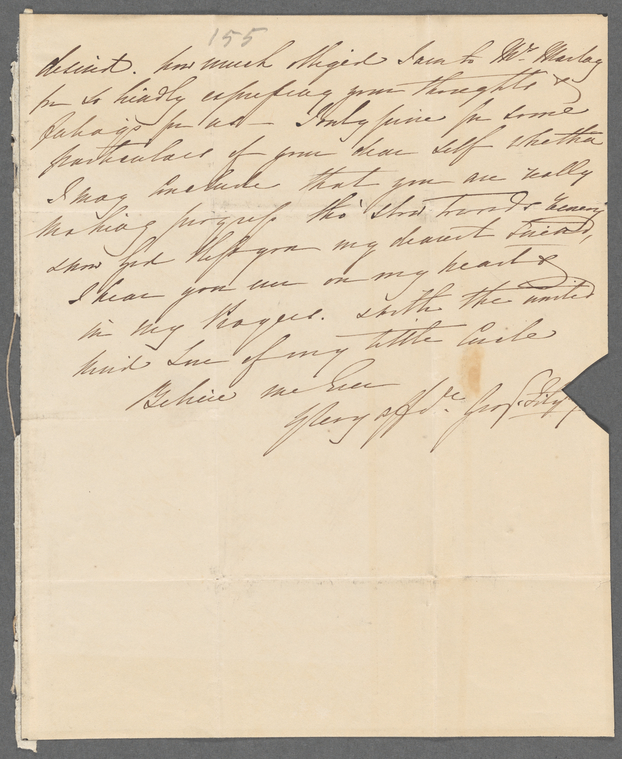 155
desired. how much obliged I am to Mr. 
for so kindly expressing your thoughts &
for us I only pine for some
particulars of your dear self whether
I may conclude that you are really
making progress tho' slow towards
God bless you my dearest Friend,
I bear you ever on my heart &
in my Prayers. with the united
kind Love of my little Circle
Believe me Ever
Yr very affte.